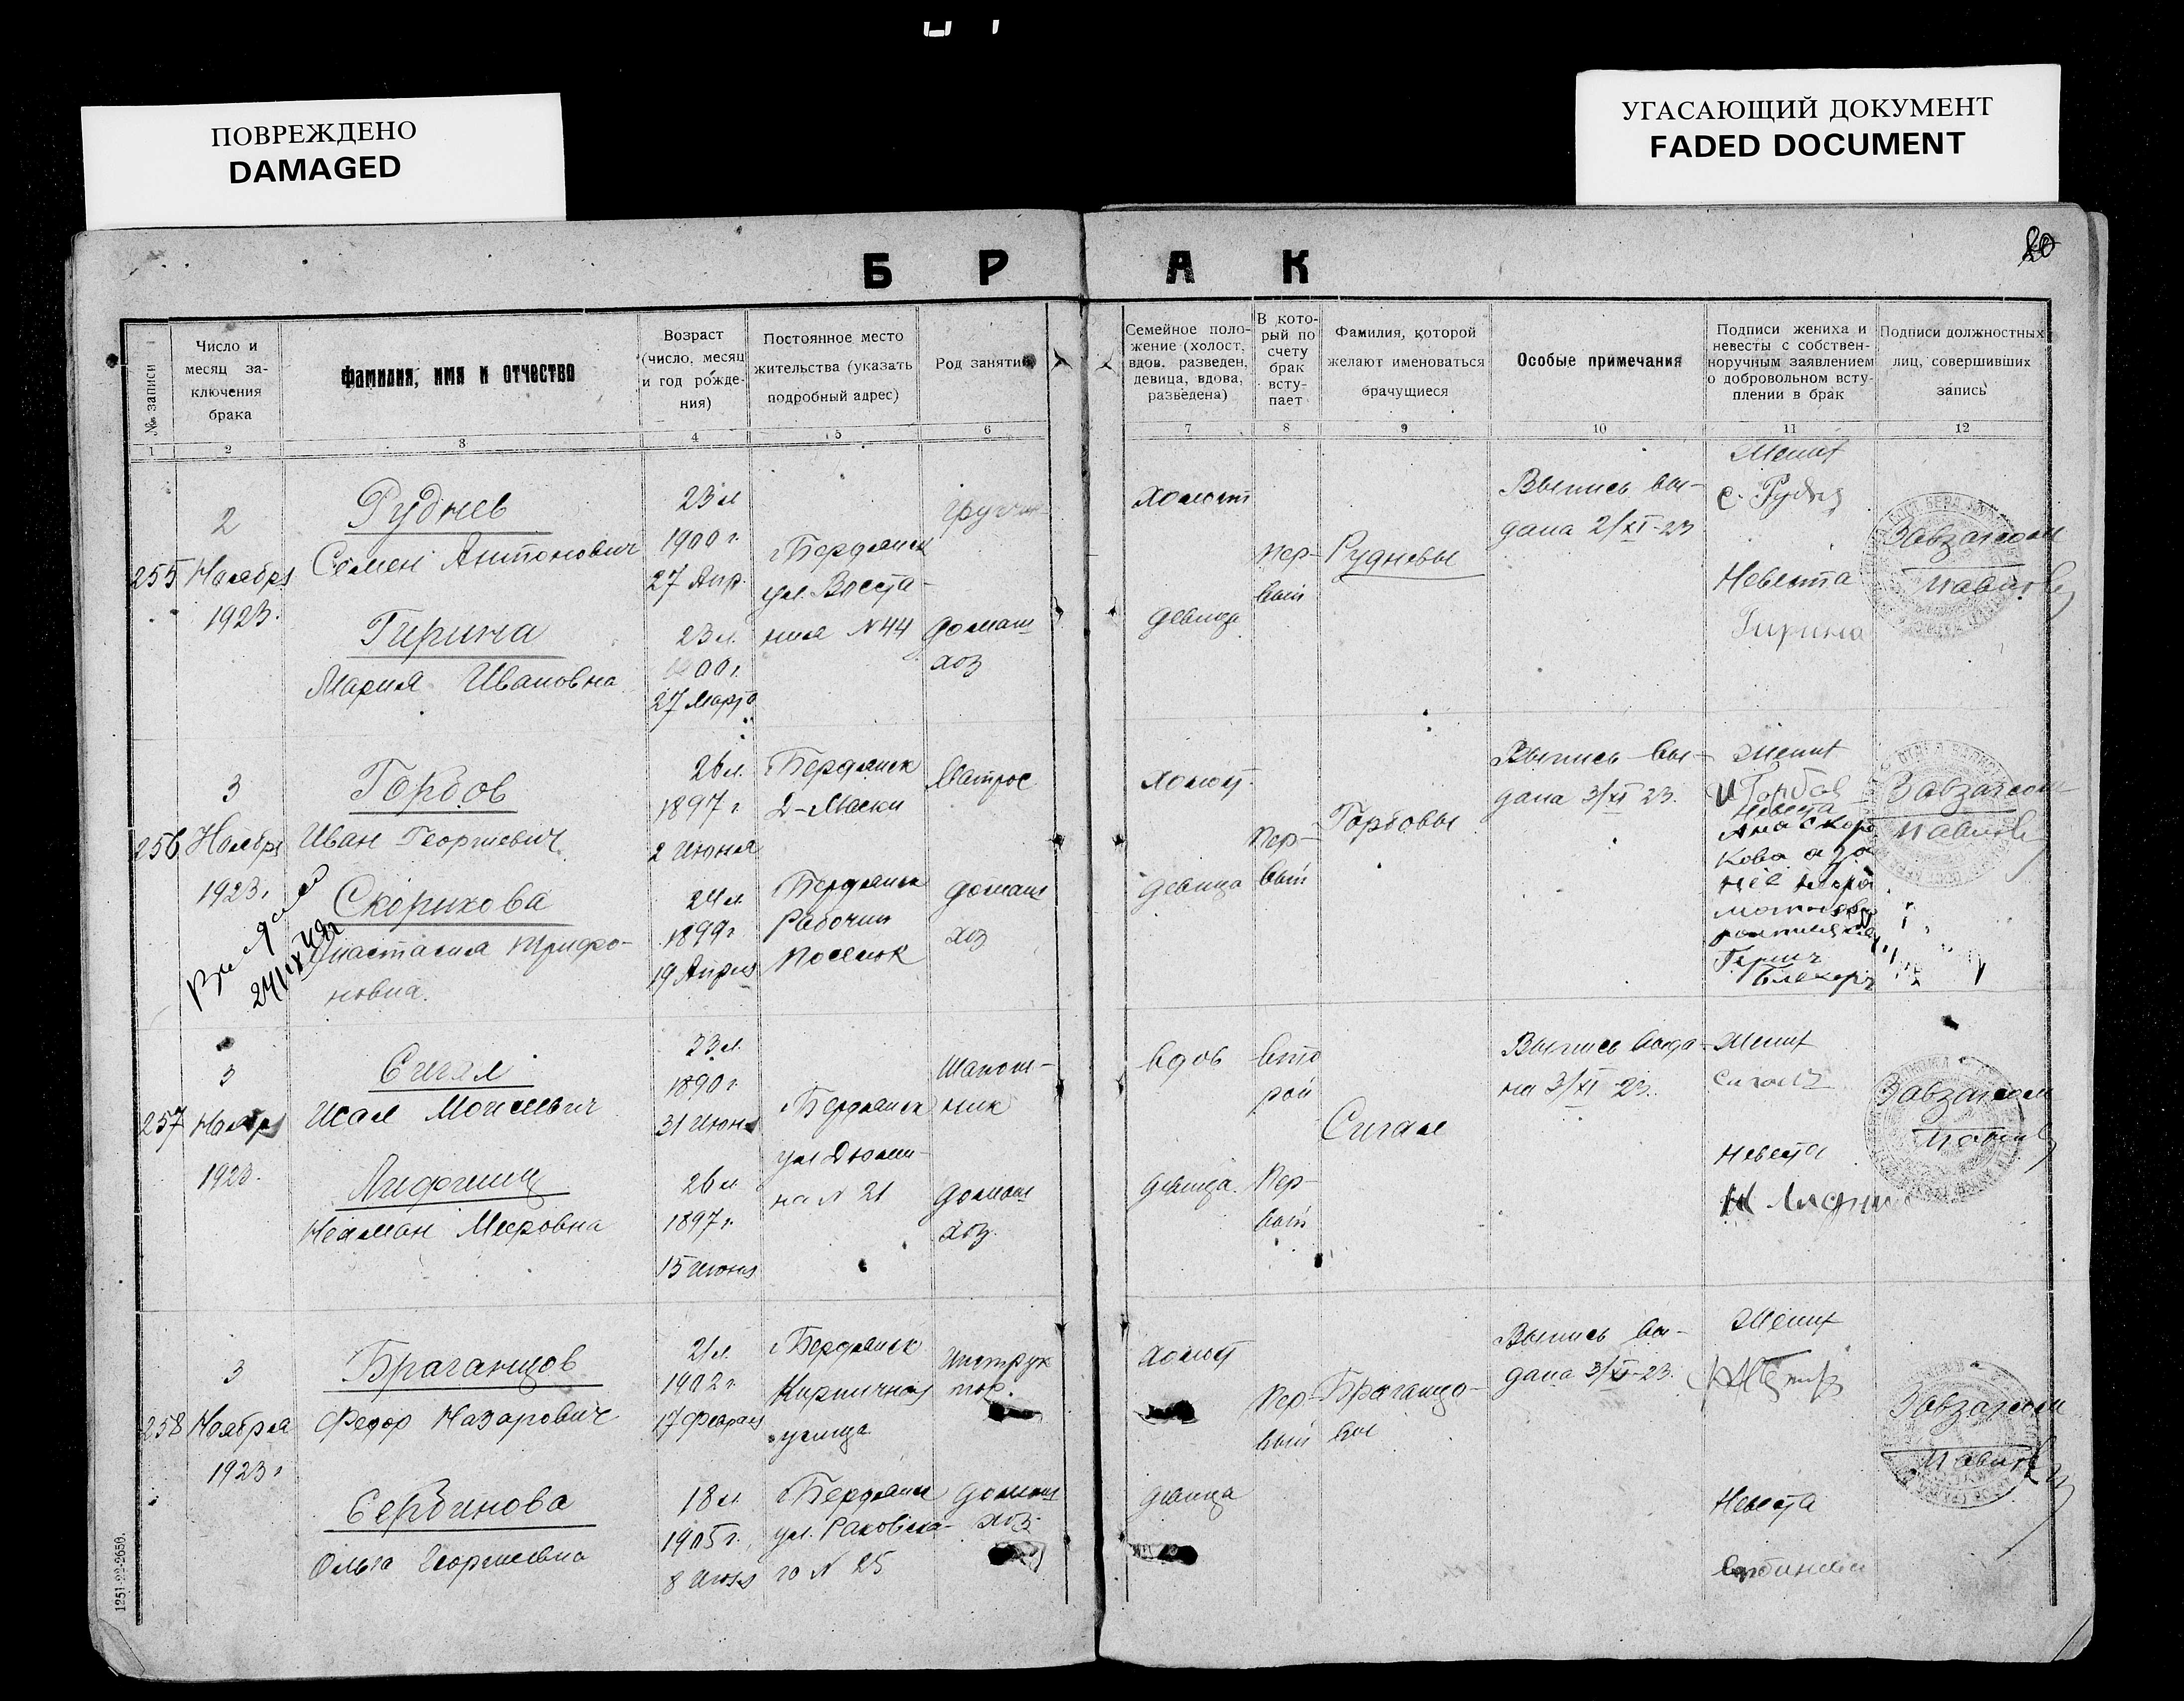 ПОВРЕЖДЕНО
DAMAGED
УГАСАЮЩИЙ ДОКУМЕНТ
FADED DOCUMENT
80
Б Р А К
№ записи
Число и
месяц за-
ключения
брака
Фамилия, имя и отчество
Возраст
(число, месяц
и год рожде-
ния)
Постоянное место
жительства (указать
подробный адрес)
Род занятий
Семейное поло-
жение (холост,
вдов, разведен,
девица, вдова,
разведена)
В кото-
рый по
счету
брак
всту-
пает
Фамилия, которой
желают именоваться
брачущиеся
Особые примечания
Подписи жениха и
невесты с собствен-
норучным заявлением
о добровольном всту-
плении в брак
Подписи должностных
лиц, совершивших
запись
1 2 3 4 5 6 7 8 9 10 11 12
255
2
Ноября
1923.
Руднев
Семен Антонович
Гирина
Мария Ивановна
23 л
1900 г.
27 Апр.
23 л.
1900 г.
27 Марта
г Бердянск
ул. Восста-
ния N 44
домаш
хоз
холост
девица
пер-
вый
Рудневы
Выпись вы-
дана 2/XI-23
Жених
С. Рудня
Невеста
Гирина
Завзагсом
256
3
Ноября
1923 г
Горбов
Иван Георгиевич
Скорикова
Анастасия Трифо-
новна.
26 л.
1897 г
2 Июня
24 л
1899 г
19 Апреля
г Бердянск
Д-Маски
г Бердянск
Рабочий
Поселок
Матрос
домаш
хоз
холост
девица
Пер-
вый
Горбовы
Выпись вы-
дана 3/XI 23.
Жених
И Горбов
Невеста
Ана Скори
кова а за
нее негра
мотную
Завзагсом
257
3
Ноябр
1923.
Сигал
Исай Моисеевич
Лифшиц
Нехман Мееровна
33 л.
1890 г.
31 Июня
26 л
1897 г.
15 Июня
г Бердянск
ул Дюми-
на N 21
Шапош-
ник
домаш
хоз.
вдов
девица.
вто
рой
Пер-
вый
Сигал
Выпись выда-
на 3/XI-23.
Жених
Сигалъ
Невеста
Завзагсом
258
3
Ноября
1923 г
Браганцов
Федор Назарович
Сербинова
Ольга Георгиевна
21 л.
1902 г.
17 Февраля
18 л.
1905 г.
8 Июля
г Бердянск
Кирпичная
улица
г Бердянск
ул. Раковско-
го N 25
Инструк
тор.
домаш
хоз.
холост
девица
Пер-
вый
Браганцо-
вы
Выпись вы-
дана 3/XI-23.
Жених
Невеста
Сербинова
Завзагсом
1251-22-2650.